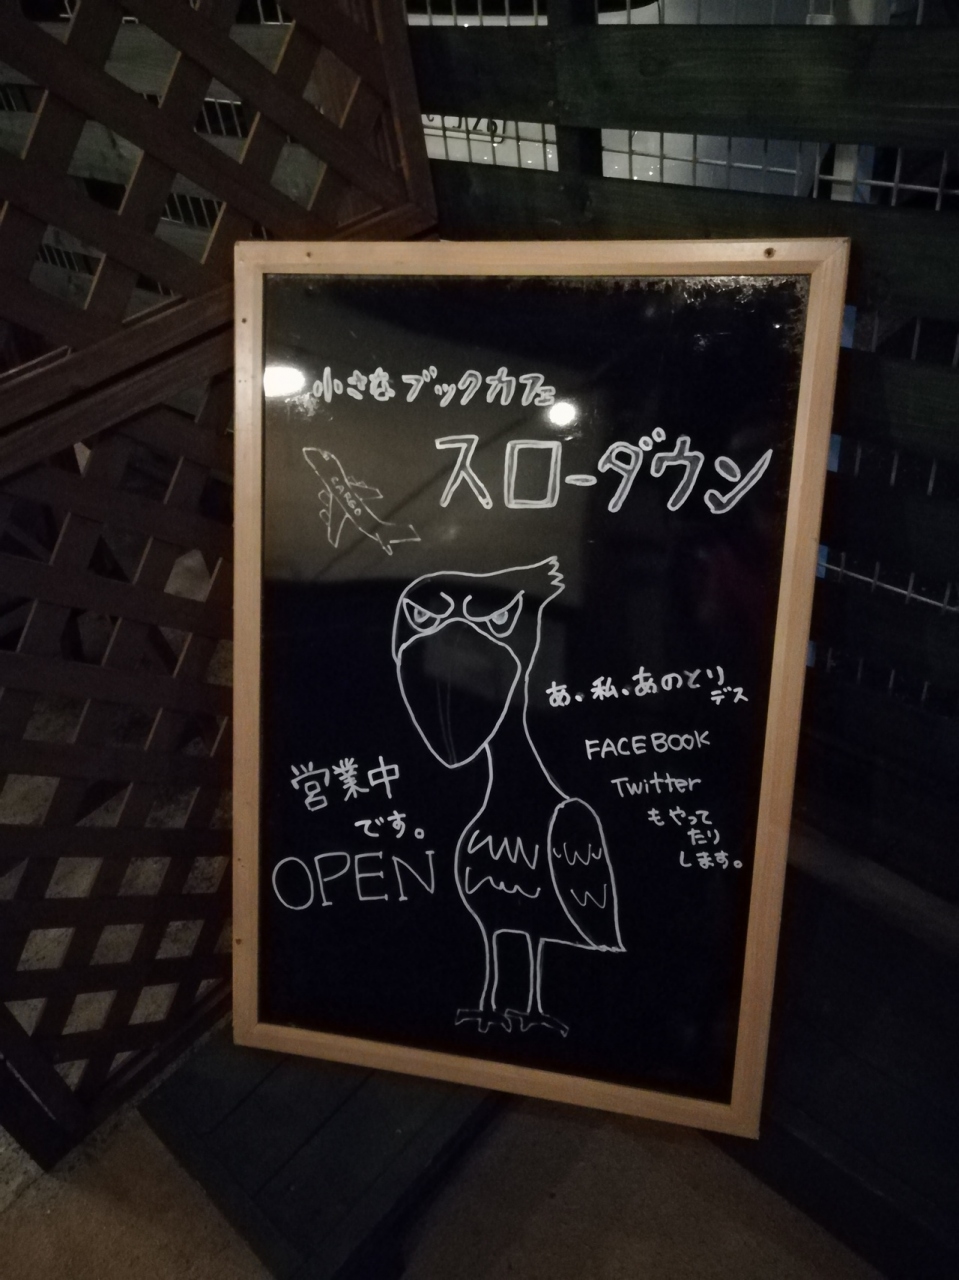 小さなブックカフェ
スローダウン
CARGO
あ、私、あのとり
デス
FACEBOOK
Twitter
もやって
たり
します。
営業中
です。
OPEN